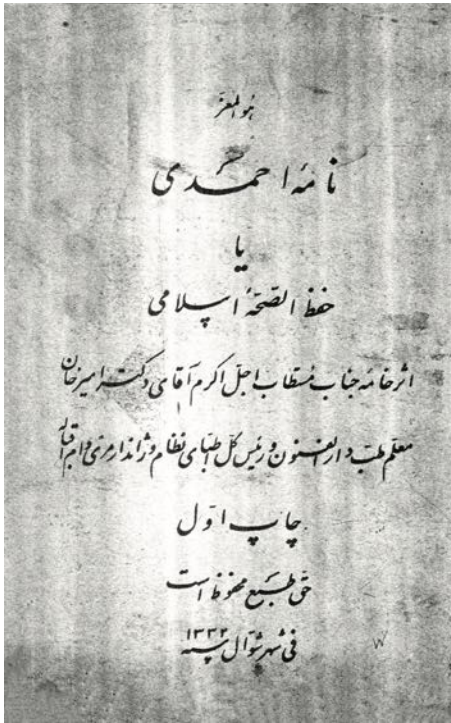 هو المعز
نامهٔ احمدی
یا
حفظ الصحهٔ اسلامی
اثر خامه جناب مستطاب اجل اکرم آقای دکتر امیرخان
معلم طب دارالفنون و رئیس کل اطبای نظام و ژاندارمری دام اقباله
چاپ اول
حق طبع محفوظ است
فی شهر شوال سنه ۱۳۳۲